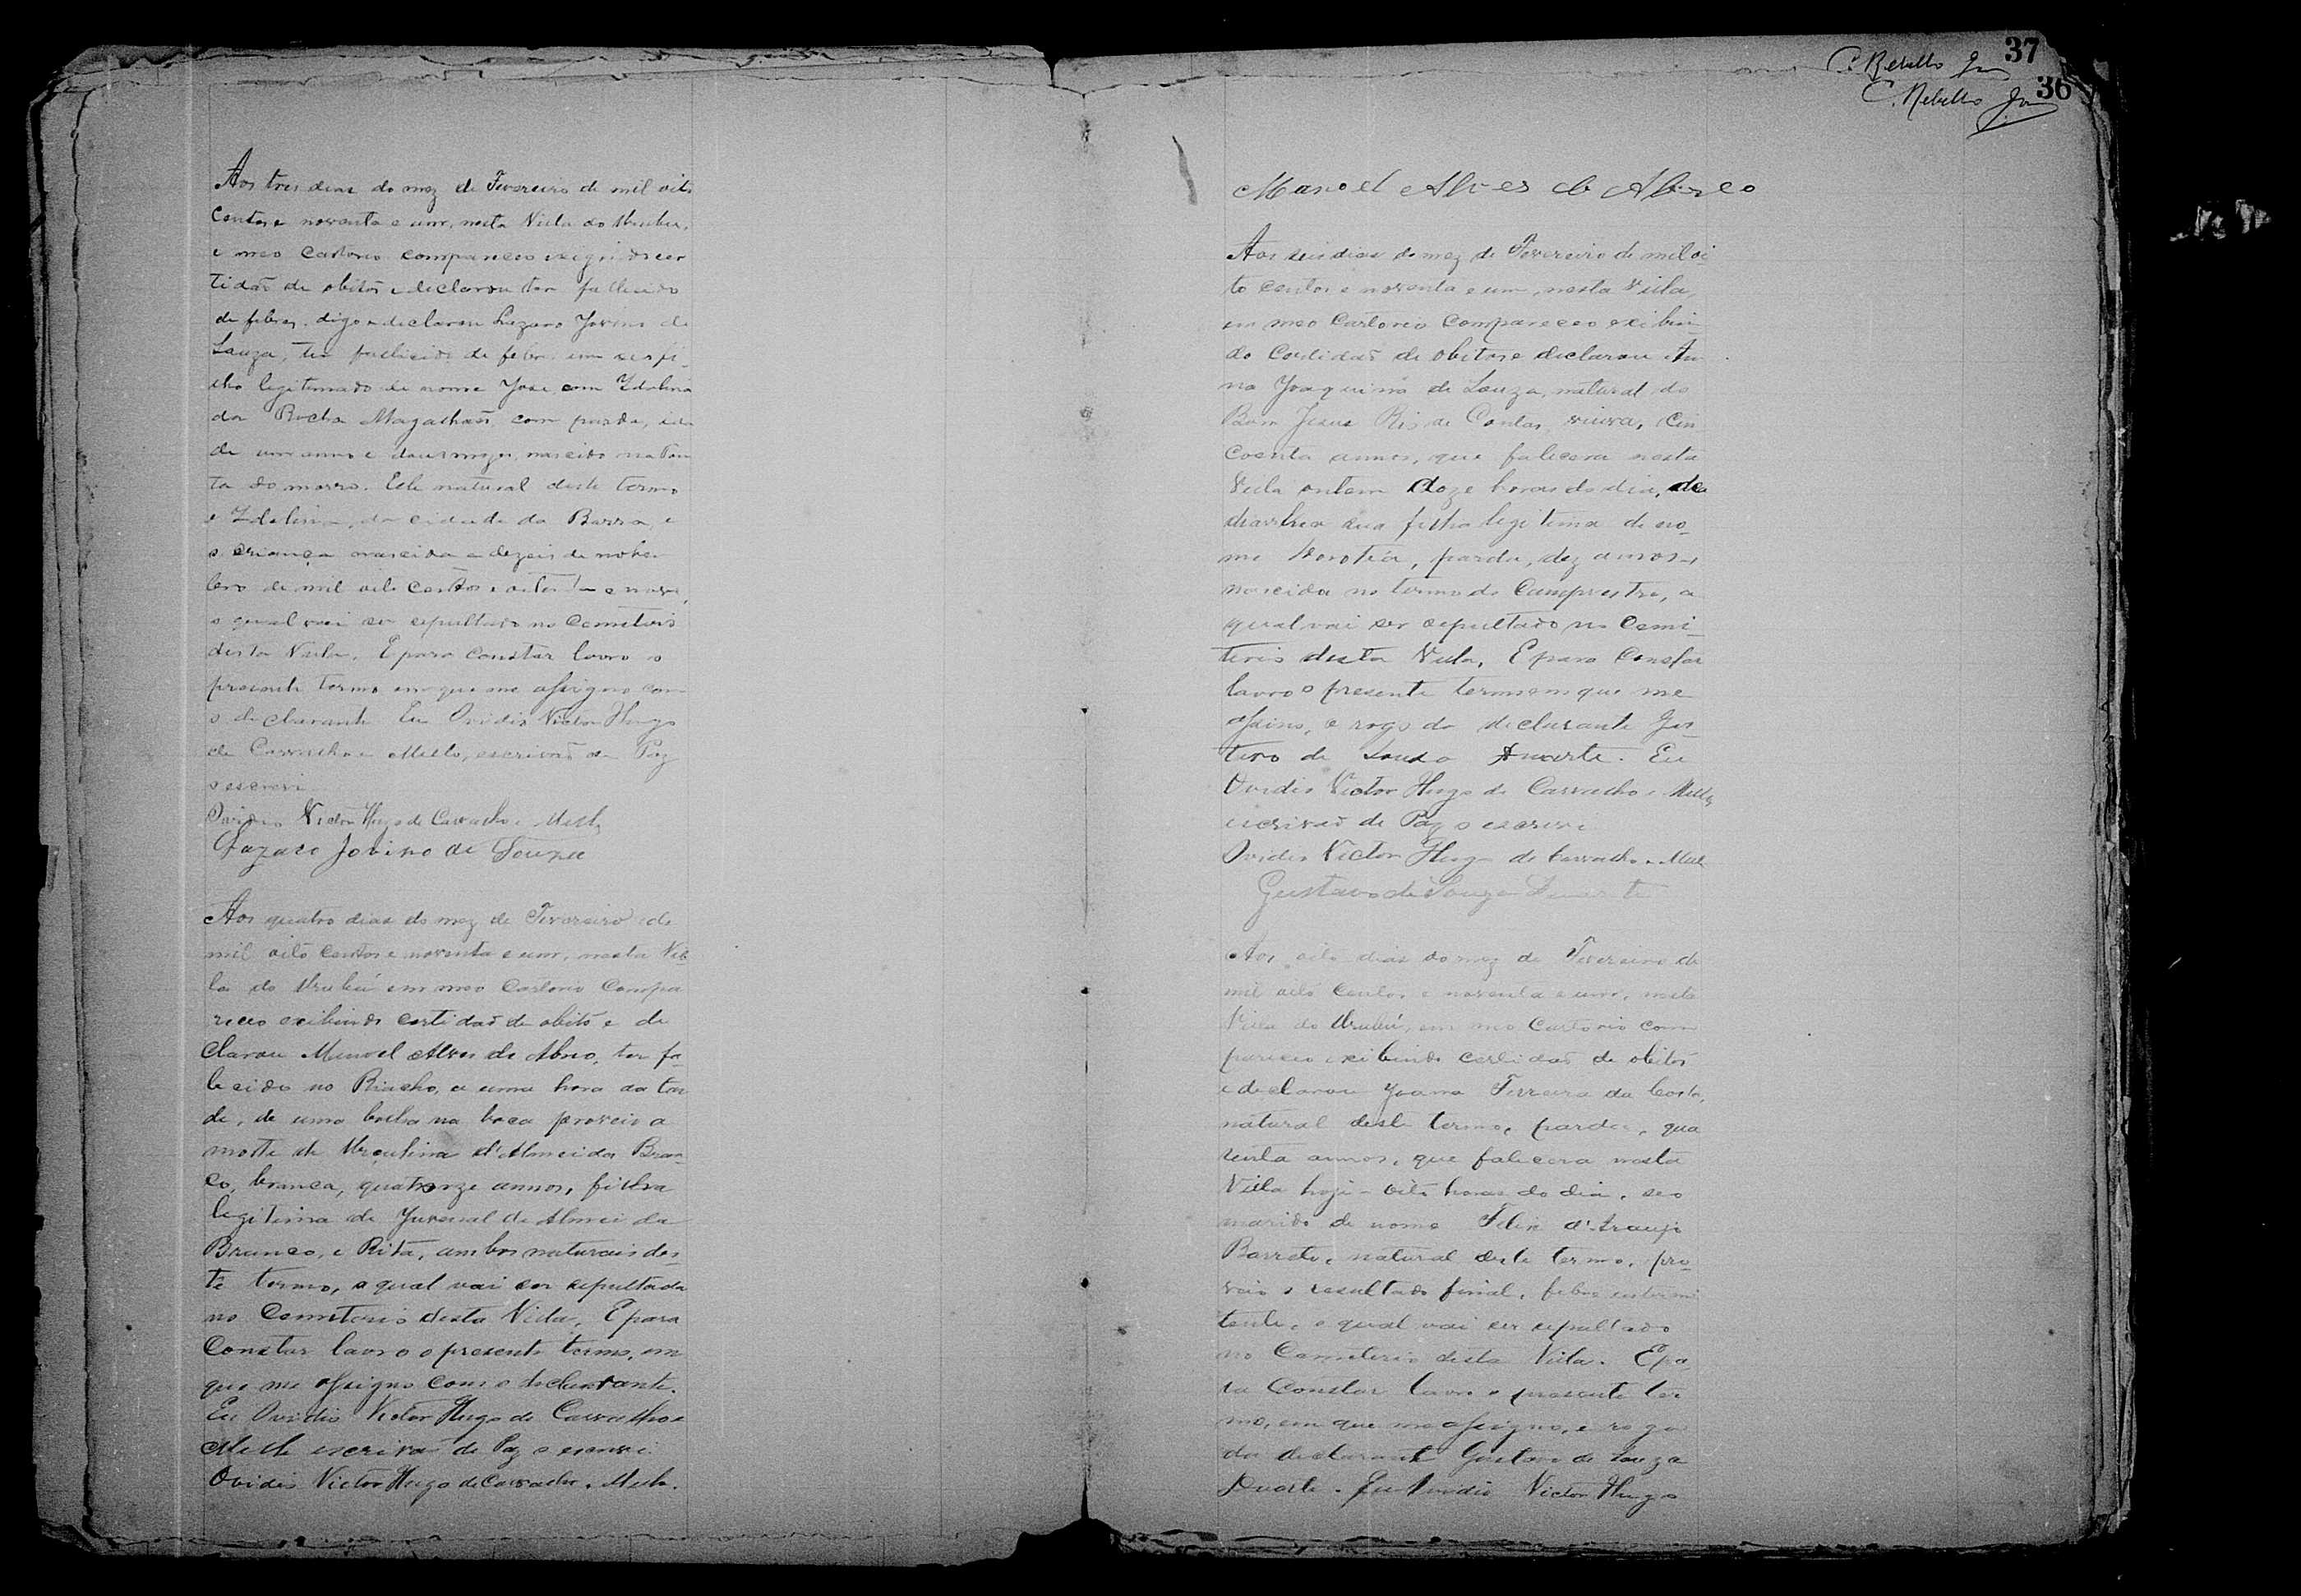 Aos tres dias do mez de Fevereiro de mil oito
Centos e noventa e um, nesta Villa do Urubu,
e meo Cartorio compareceo exigindo cer
tidaõ de obitos e declarou ter fallecido
de febres, digo e declarou Lazaro Jovino de
Souza, ter fallecido de febre um seo fi-
lho legitimado de nome José, com Idalina
da Rocha Magalhaẽs, com parda, ida
de um anno e dous mezes, nascido na Pon
ta do morro. Elle natural deste termo
e Idalina, da cidade da Barra, e
a criança nascida a dezeis de novem
bro de mil oito centos e oitenta e nove,
o qual vai ser sepultado no Cemiterio
desta Villa. E para constar lavro o
presente termo em que me assigno com
o declarante. Eu Ovidio Victor Hugo
de Carvalho e Mello, escrivaõ de Paz
o escrevi
Ovidio Victor Hugo de Carvalho e Mello
Lazaro Jovino de Souza
Aos quatro dias do mez de Fevereiro de
mil oito centos e noventa e um, nesta Vil
la do Urubú em meo Cartorio Compa
receo exibindo certidaõ de obito e de
clarou Manoel Alves de Abreo, ter fa-
lecido no Riacho, a uma hora da tar
de, de uma bolha na boca proveio a
morte de Urçulina d'Almeida Bran-
co, branca, quatorze annos, filha
legitima de Juvenal de Almeida
Branco, e Rita, ambos naturais des-
te termo, a qual vai ser sepultada
no Cemiterio desta Villa. E para
Constar lavro o presente termo, em
que me assigno com o declarante.
Eu Ovidio Victor Hugo de Carvalho e
Mello escrivaõ de Paz o escrevi.
Ovidio Victor Hugo de Carvalho e Mello.
37
C. Rebello Jor
36
C. Rebello Jor
Manoel Alves de Abreo
Aos seis dias do mez de Fevereiro de mil oi-
to centos e noventa e um, nesta Villa,
em meo Cartorio compareceo exibin
do Certidaõ de obitos e declarou An
na Joaquina de Souza, natural do
Bom Jesus Rio de Contas, viuva, Cin
coenta annos, que falicera nesta
Villa ontem doze horas do dia, de
diarrhea sua filha legitima de no-
me Dorotéa, parda, dez annos,
nascida no termo do Campestre, a
qual vai ser sepultado no Cemi-
terio desta Villa. E para Constar
lavro o presente termo em que me
assino, a rogo da declarante Gus-
tavo de Souza Duarte. Eu
Ovidio Victor Hugo de Carvalho e Mello
escrivaõ de Paz o escrevi
Ovidio Victor Hugo de Carvalho e Mello
Gustavo de Souza Duarte
Aos oito dias do mez de Fevereiro de
mil oito Centos e noventa e um, nesta
Villa do Urubú, em meo Cartorio com
pareceo exibindo certidaõ de obitos
e declarou Joana Ferreira da Costa,
natural deste termo, parda, qua
renta annos, que falicera nesta
Villa hoje - oito horas do dia, seo
marido de nome Felix d'Araujo
Barreto, natural deste termo, pro-
veio o resultado final, febre intermi
tente, o qual vai ser sepultado
no Cemiterio desta Villa. E pa-
ra Constar lavro o presente ter
mo, em que me assigno, e rogo
da declarante Gustavo de Souza
Duarte. Eu Ovidio Victor Hugo